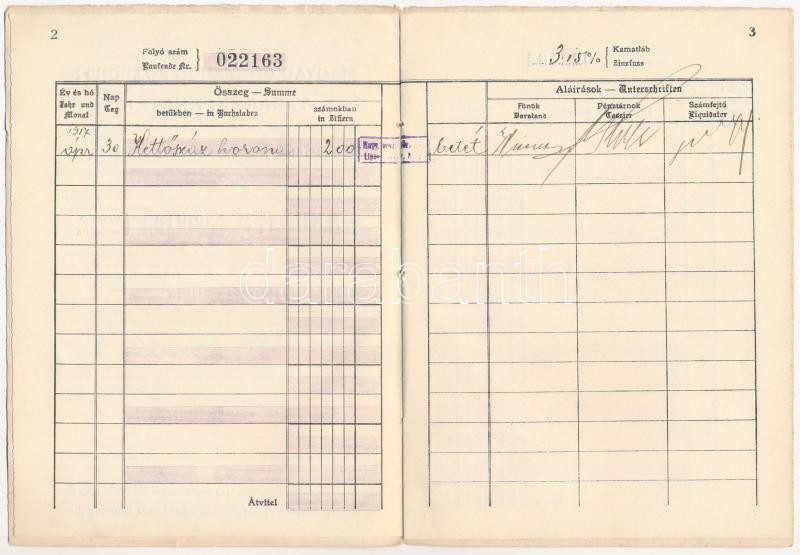 2
Folyó szám
Laufende Nr.
022163
Év és hó
Jahr und
Monat
Nap
Tag
Összeg — Summe
betükben — in Buchstaben
számokban
in Ziffern
1917
ápr
30
Kettőszáz korona
200
Átvitel
3
3.15%
Kamatláb
Zinsfuss
Aláirások — Unterschriften
Főnök
Vorstand
Pénztárnok
Cassier
Számfejtő
Liquidator
betét
darabanth